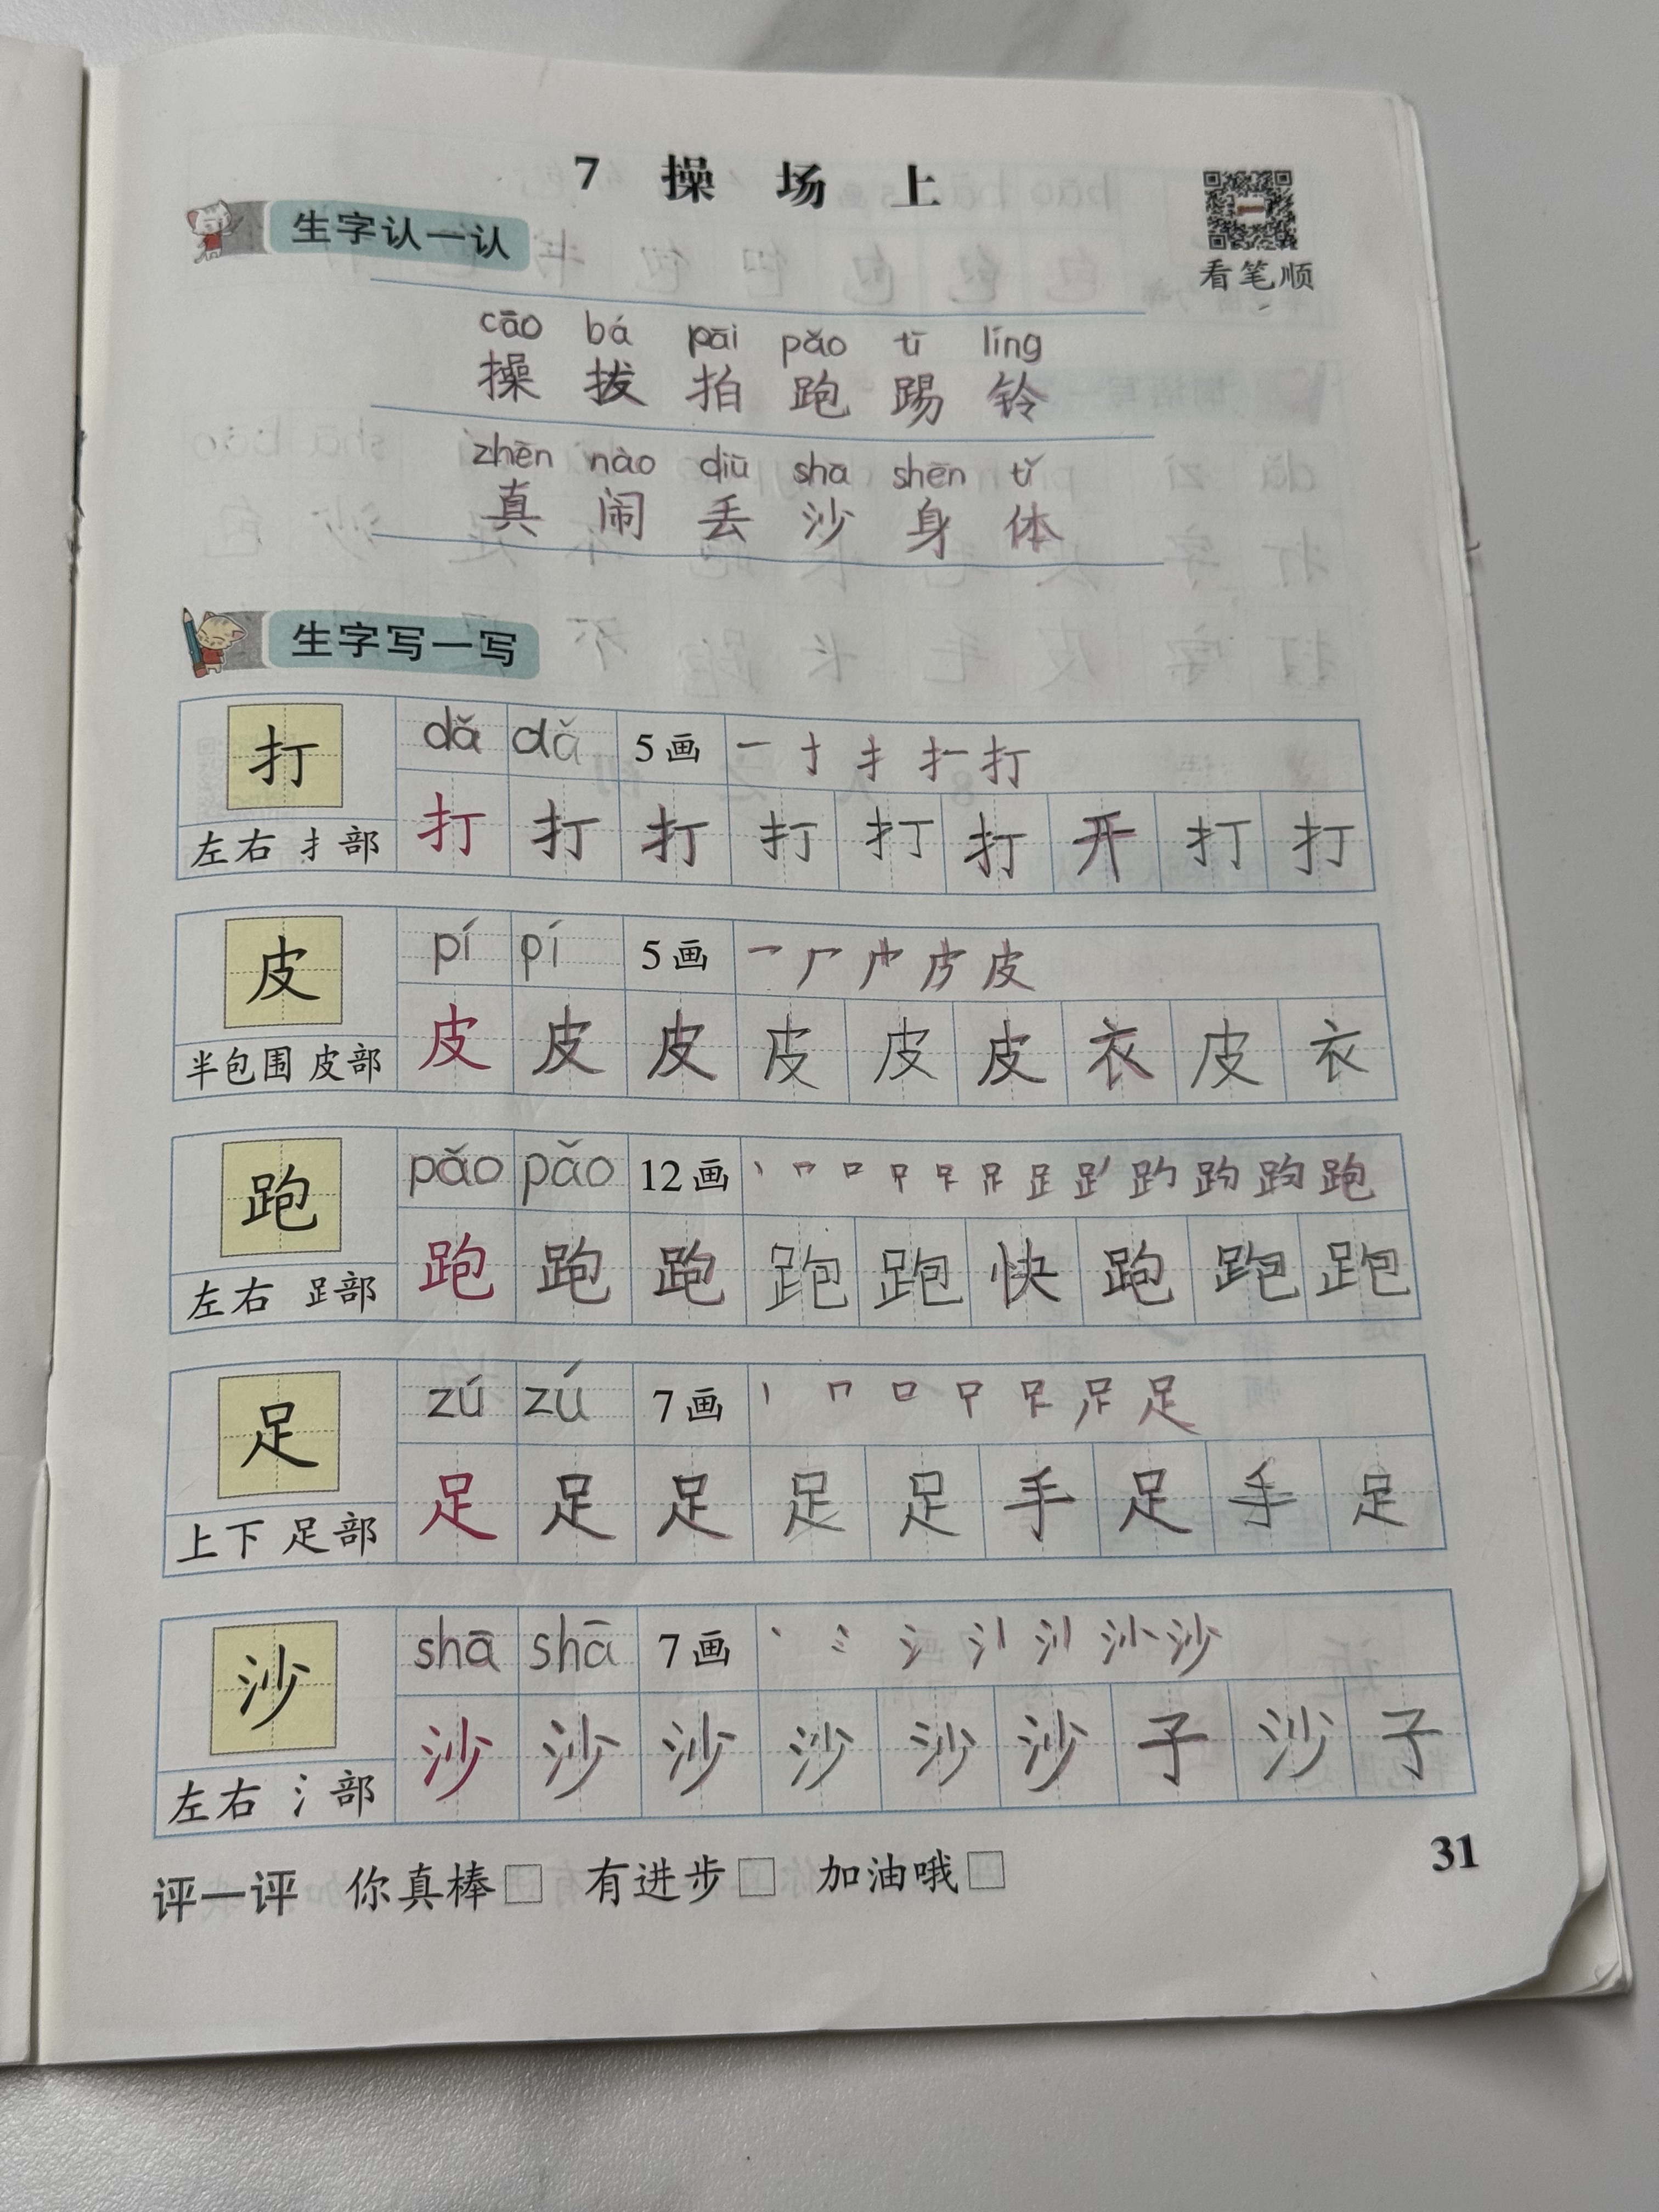 7 操 场 上
生字认一认
看笔顺
cāo bá pāi pǎo tī líng
操 拔 拍 跑 踢 铃
zhēn nào diū shā shēn tǐ
真 闹 丢 沙 身 体
生字写一写
打 dǎ dǎ 5画 一 扌 扌 打
左右 扌部 打 打 打 打 打 打 开 打 打
皮 pí pí 5画 皮
半包围 皮部 皮 皮 皮 皮 皮 皮 衣 皮 衣
跑 pǎo pǎo 12画 丶 口 足 跑
左右 𧾷部 跑 跑 跑 跑 跑 快 跑 跑 跑
足 zú zú 7画 丨 口 足
上下 足部 足 足 足 足 足 手 足 手 足
沙 shā shā 7画 丶 冫 氵 沙
左右 氵部 沙 沙 沙 沙 沙 沙 子 沙 子
评一评 你真棒□ 有进步□ 加油哦□
31